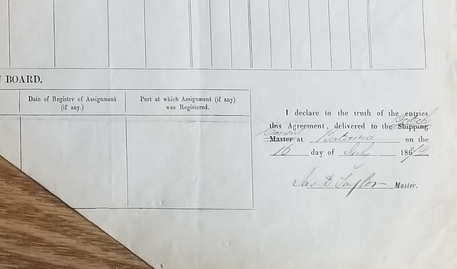 BOARD.
Date of Register of Assignment
(if any.)
Port at which Assignment (if any)
was Registered.
I declare to the truth of the entries
this Agreement, delivered to the Shipping
Consul
Master at Batavia on the
16 day of July 186
Jas D Taylor Master.